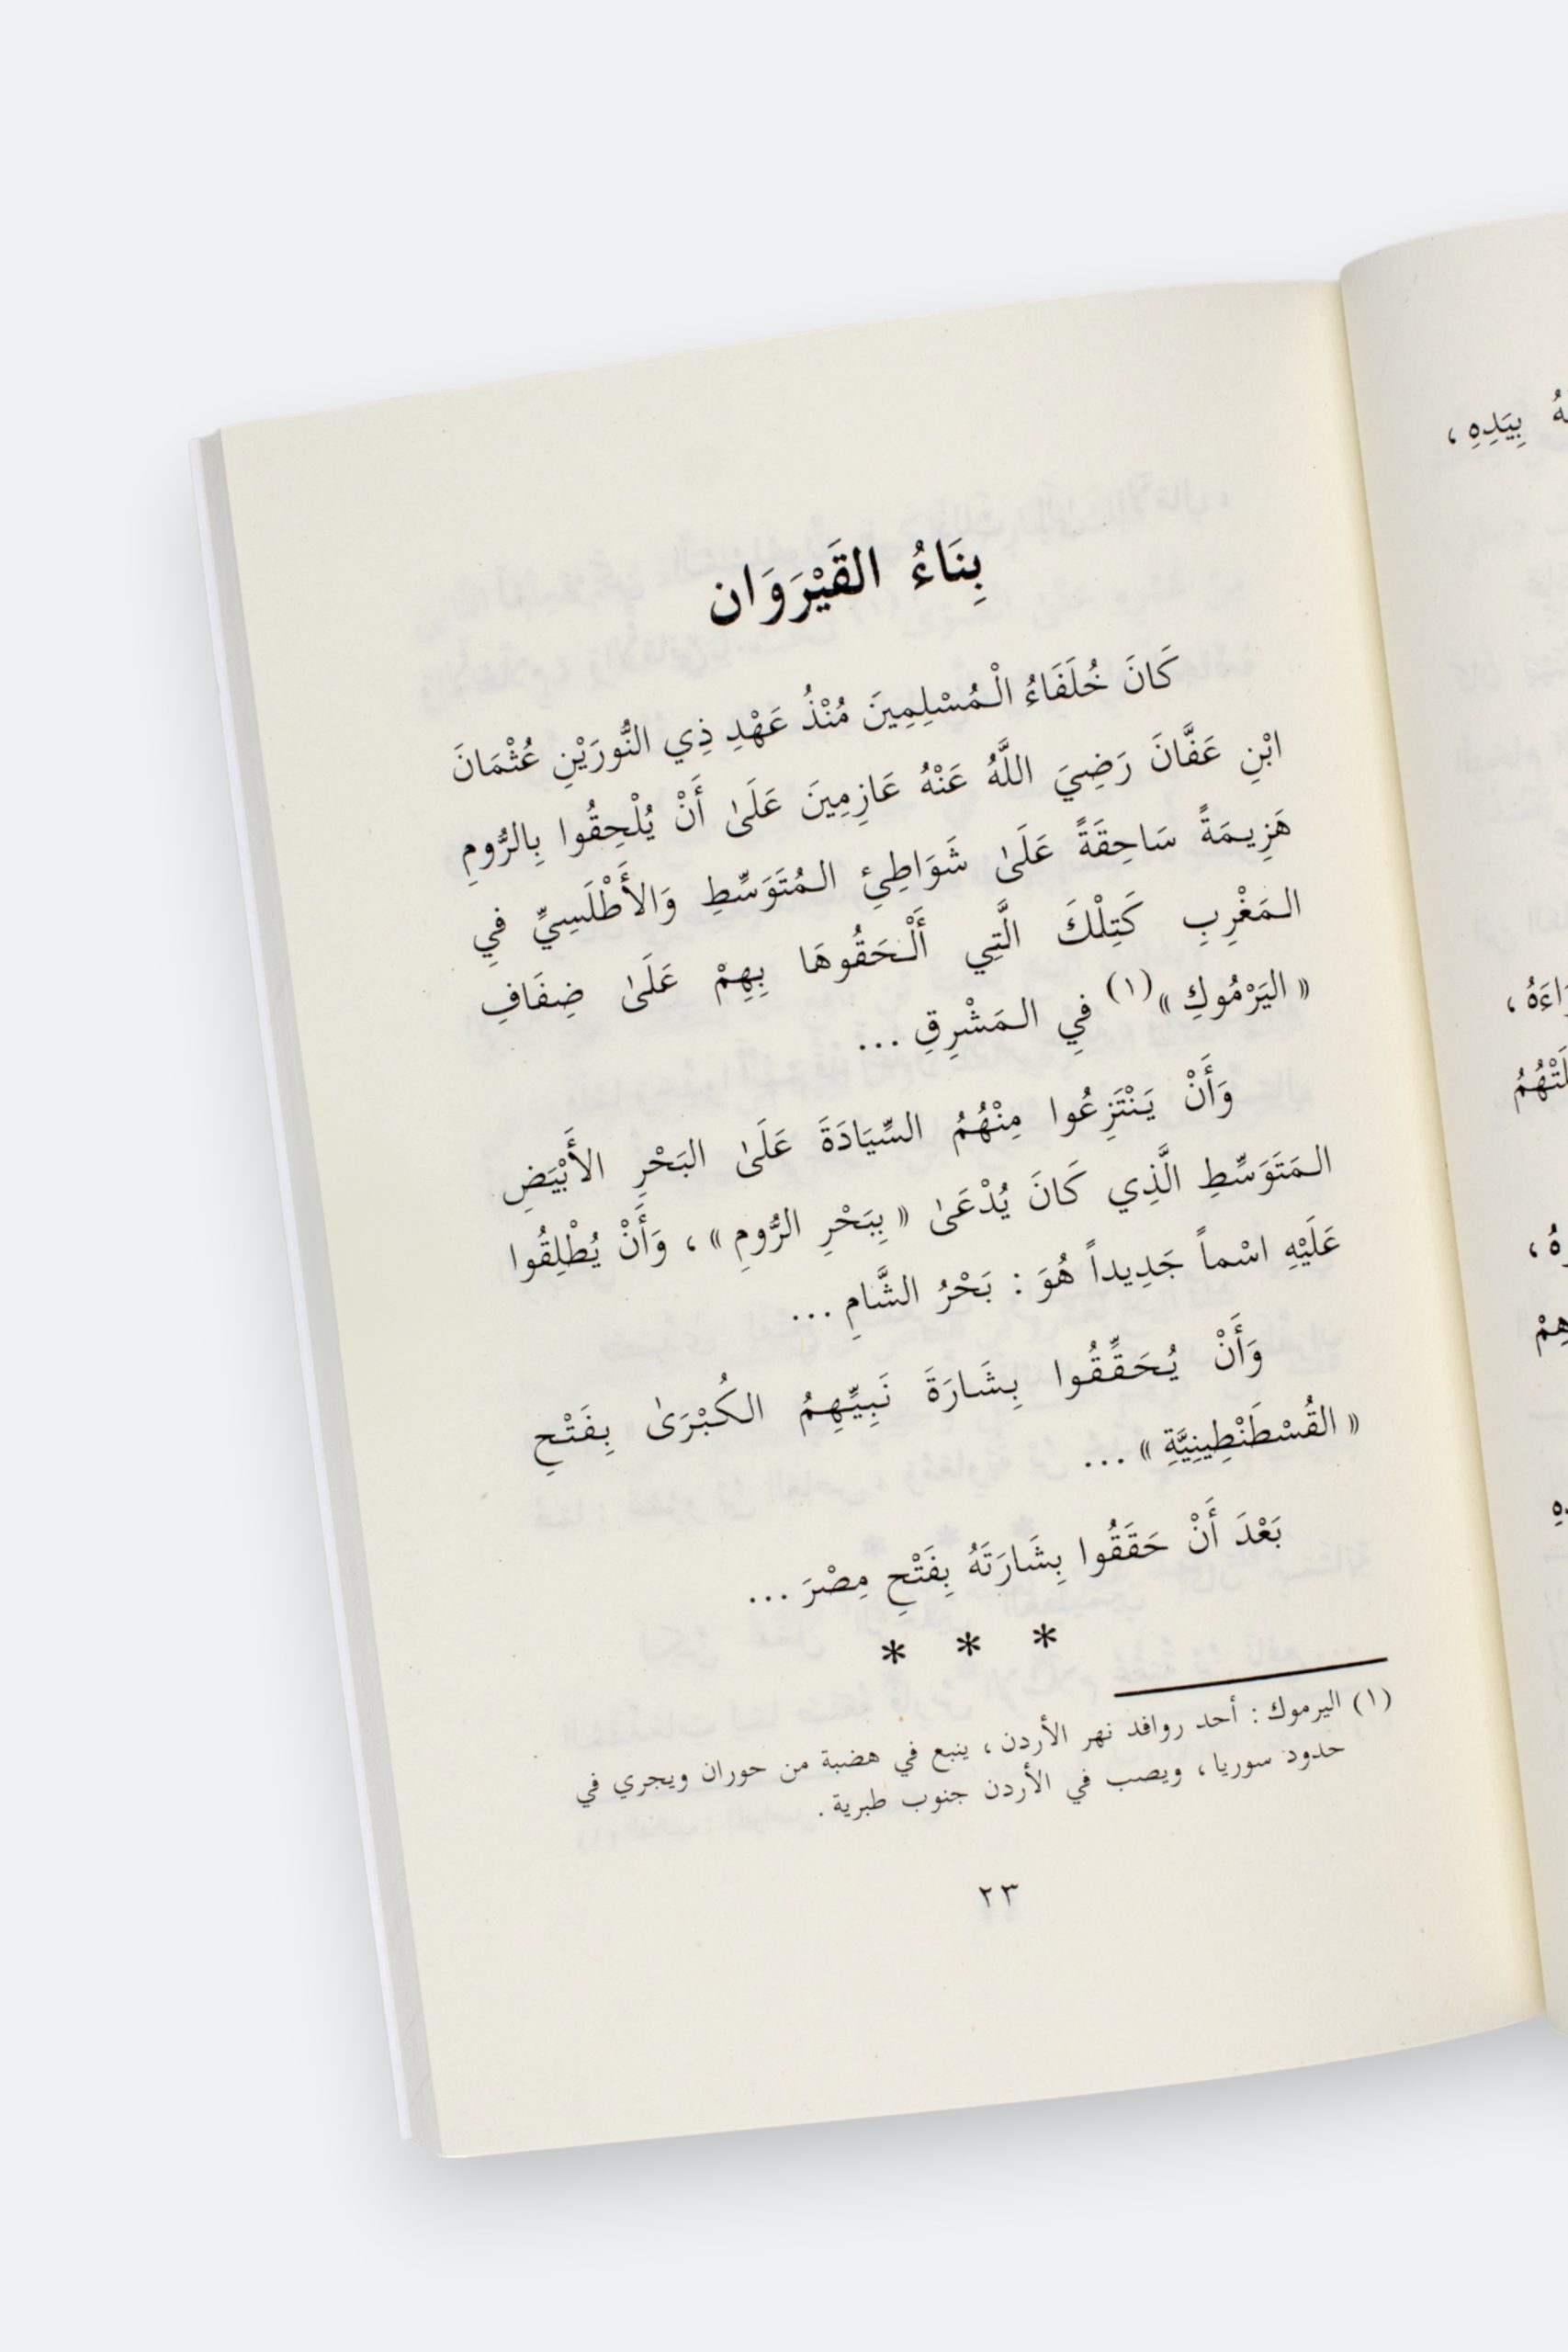 بِنَاءُ القَيْرَوَان
كَانَ خُلَفَاءُ الْمُسْلِمِينَ مُنْذُ عَهْدِ ذِي النُّورَيْنِ عُثْمَانَ
ابْنِ عَفَّانَ رَضِيَ اللَّهُ عَنْهُ عَازِمِينَ عَلَىٰ أَنْ يُلْحِقُوا بِالرُّومِ
هَزِيمَةً سَاحِقَةً عَلَىٰ شَوَاطِئِ المُتَوَسِّطِ وَالأَطْلَسِيِّ فِي
المَغْرِبِ كَتِلْكَ الَّتِي أَلْحَقُوهَا بِهِمْ عَلَىٰ ضِفَافِ
« اليَرْمُوكِ »(١) فِي المَشْرِقِ ...
وَأَنْ يَنْتَزِعُوا مِنْهُمُ السِّيَادَةَ عَلَىٰ البَحْرِ الأَبْيَضِ
المَتَوَسِّطِ الَّذِي كَانَ يُدْعَىٰ « بِبَحْرِ الرُّومِ » ، وَأَنْ يُطْلِقُوا
عَلَيْهِ اسْماً جَدِيداً هُوَ : بَحْرُ الشَّامِ ...
وَأَنْ يُحَقِّقُوا بِشَارَةَ نَبِيِّهِمُ الكُبْرَىٰ بِفَتْحِ
« القُسْطَنْطِينِيَّةِ » ...
بَعْدَ أَنْ حَقَقُوا بِشَارَتَهُ بِفَتْحِ مِصْرَ ...
* * *
(١) اليرموك : أحد روافد نهر الأردن ، ينبع في هضبة من حوران ويجري في
حدود سوريا ، ويصب في الأردن جنوب طبرية .
٢٣
بِيَدِهِ ،